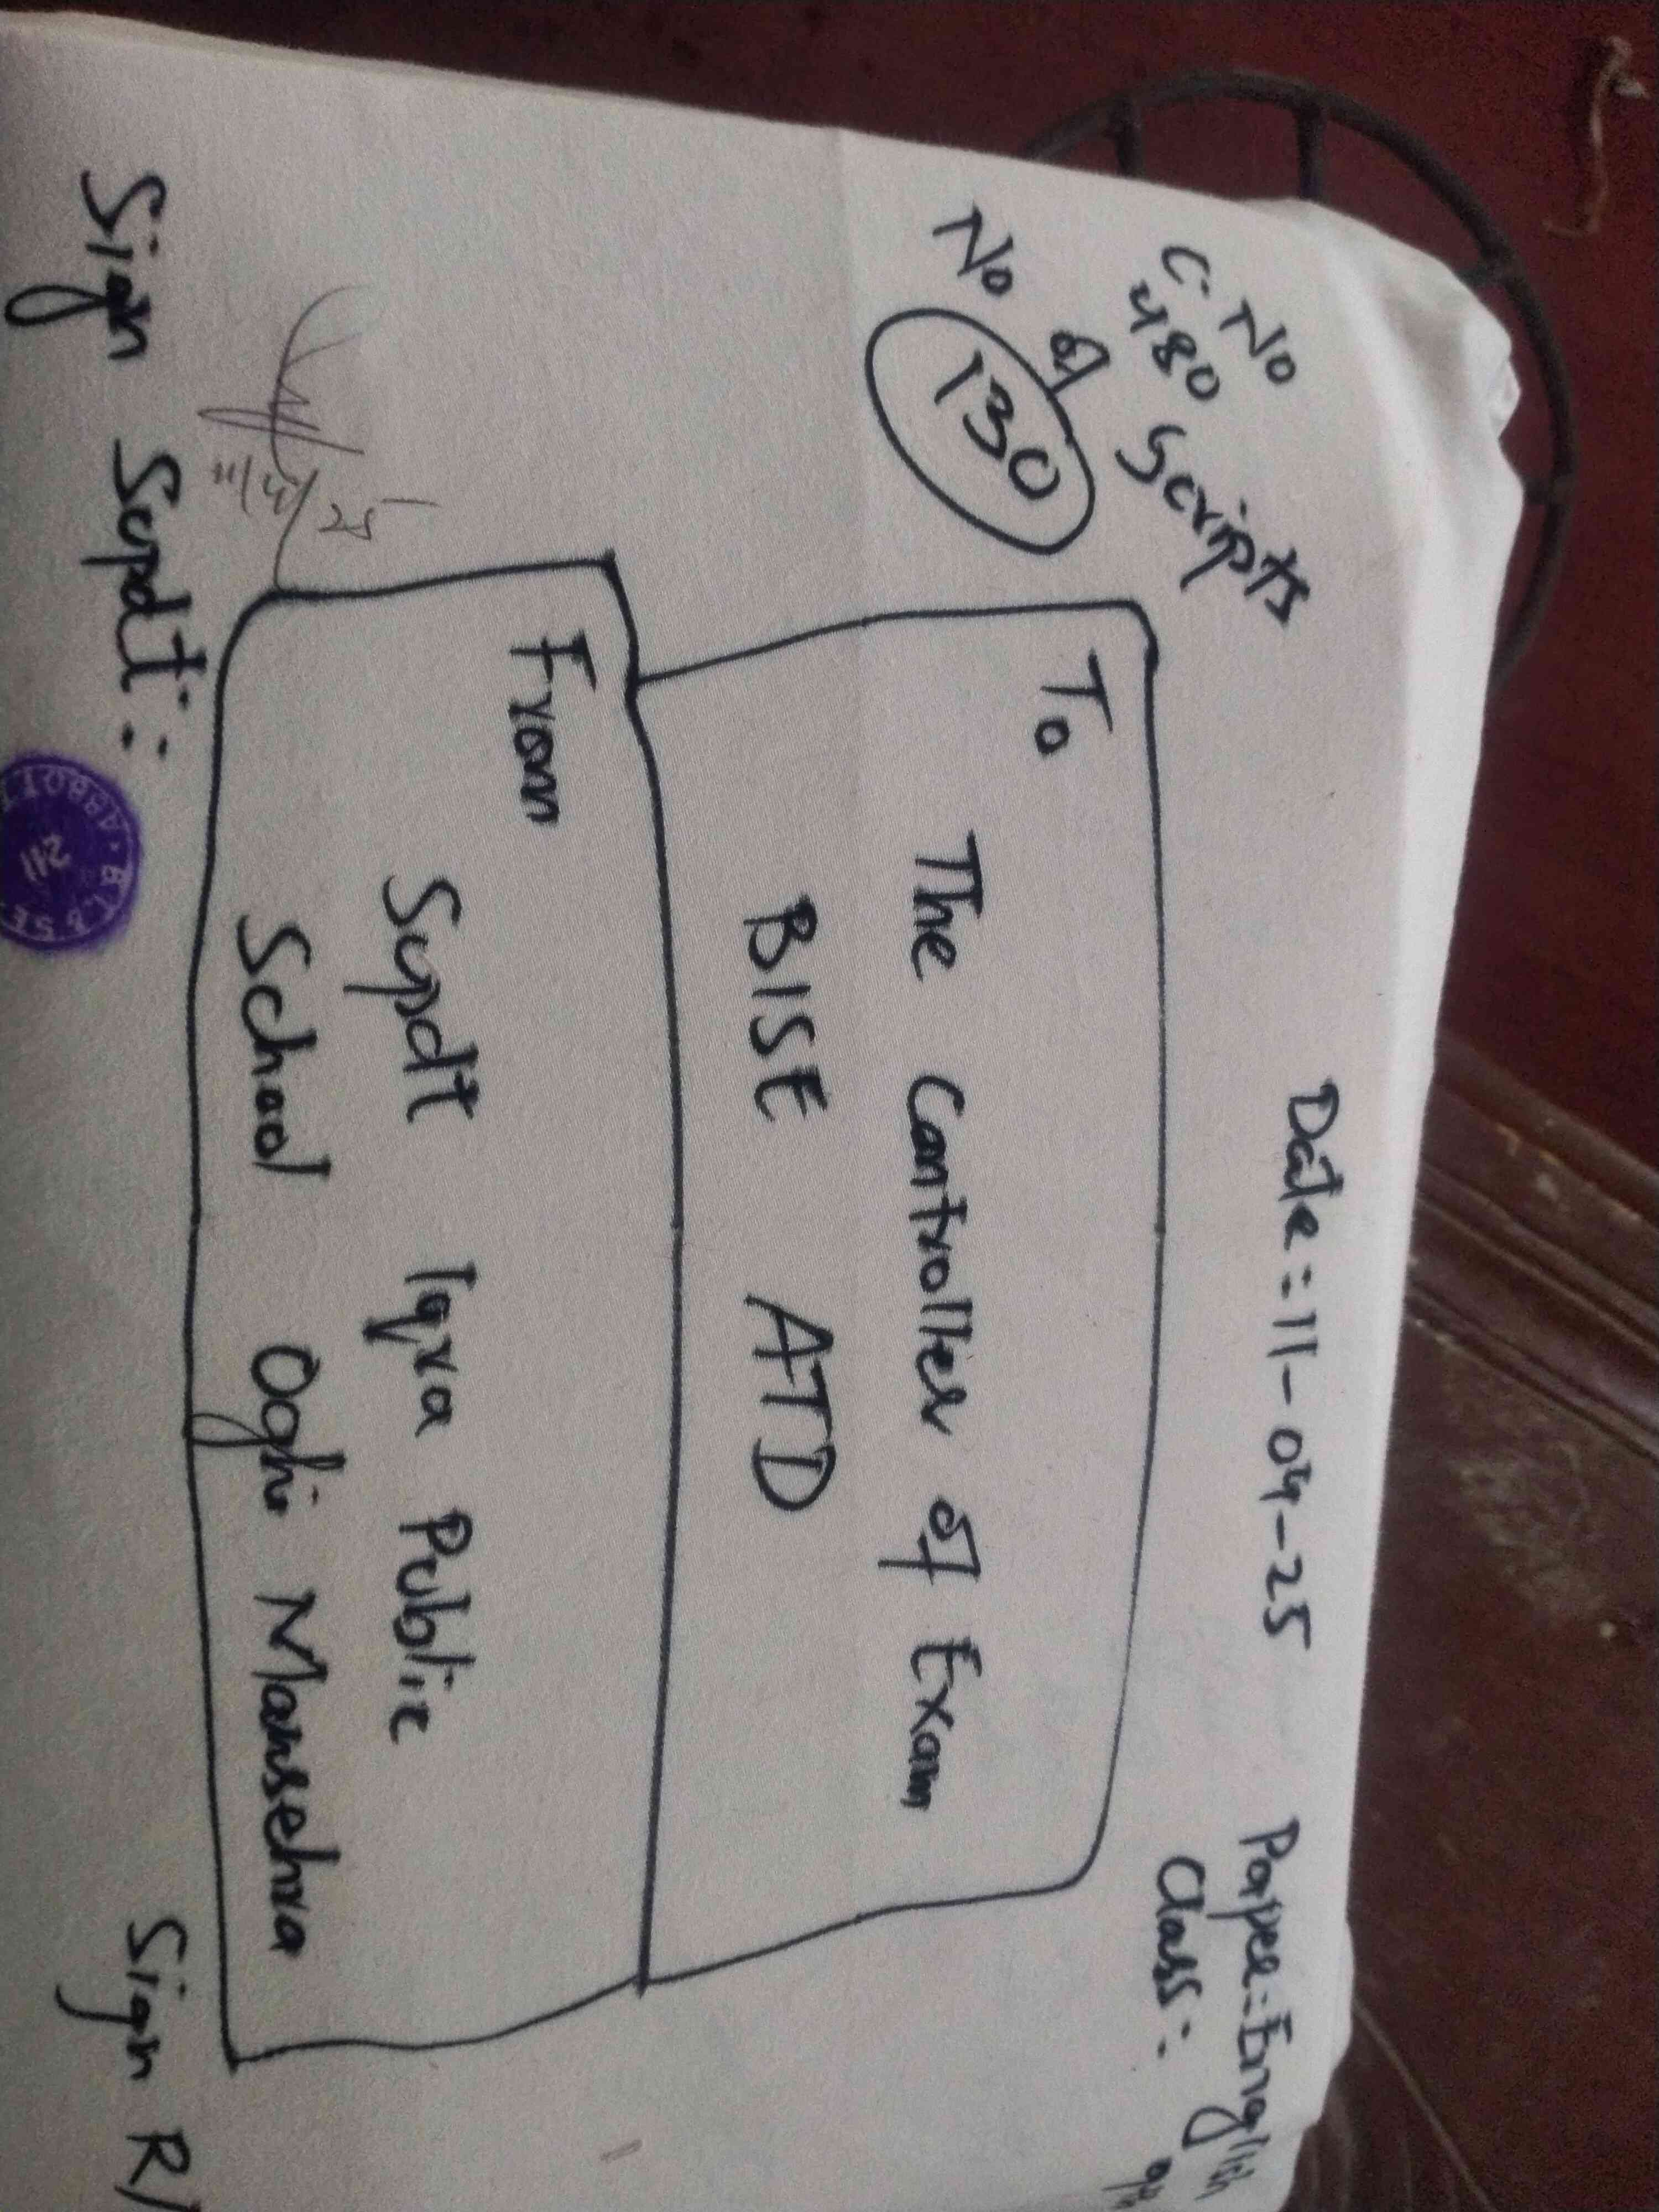 C. No
480
No of Scripts
130
Date: 11-04-25
Paper: English
Class: 9th
To
The Controller of Exam
BISE ATD
From
Supdt Iqra Public
School Oghi Mansehra
Sign Supdt:
Sign R/
211